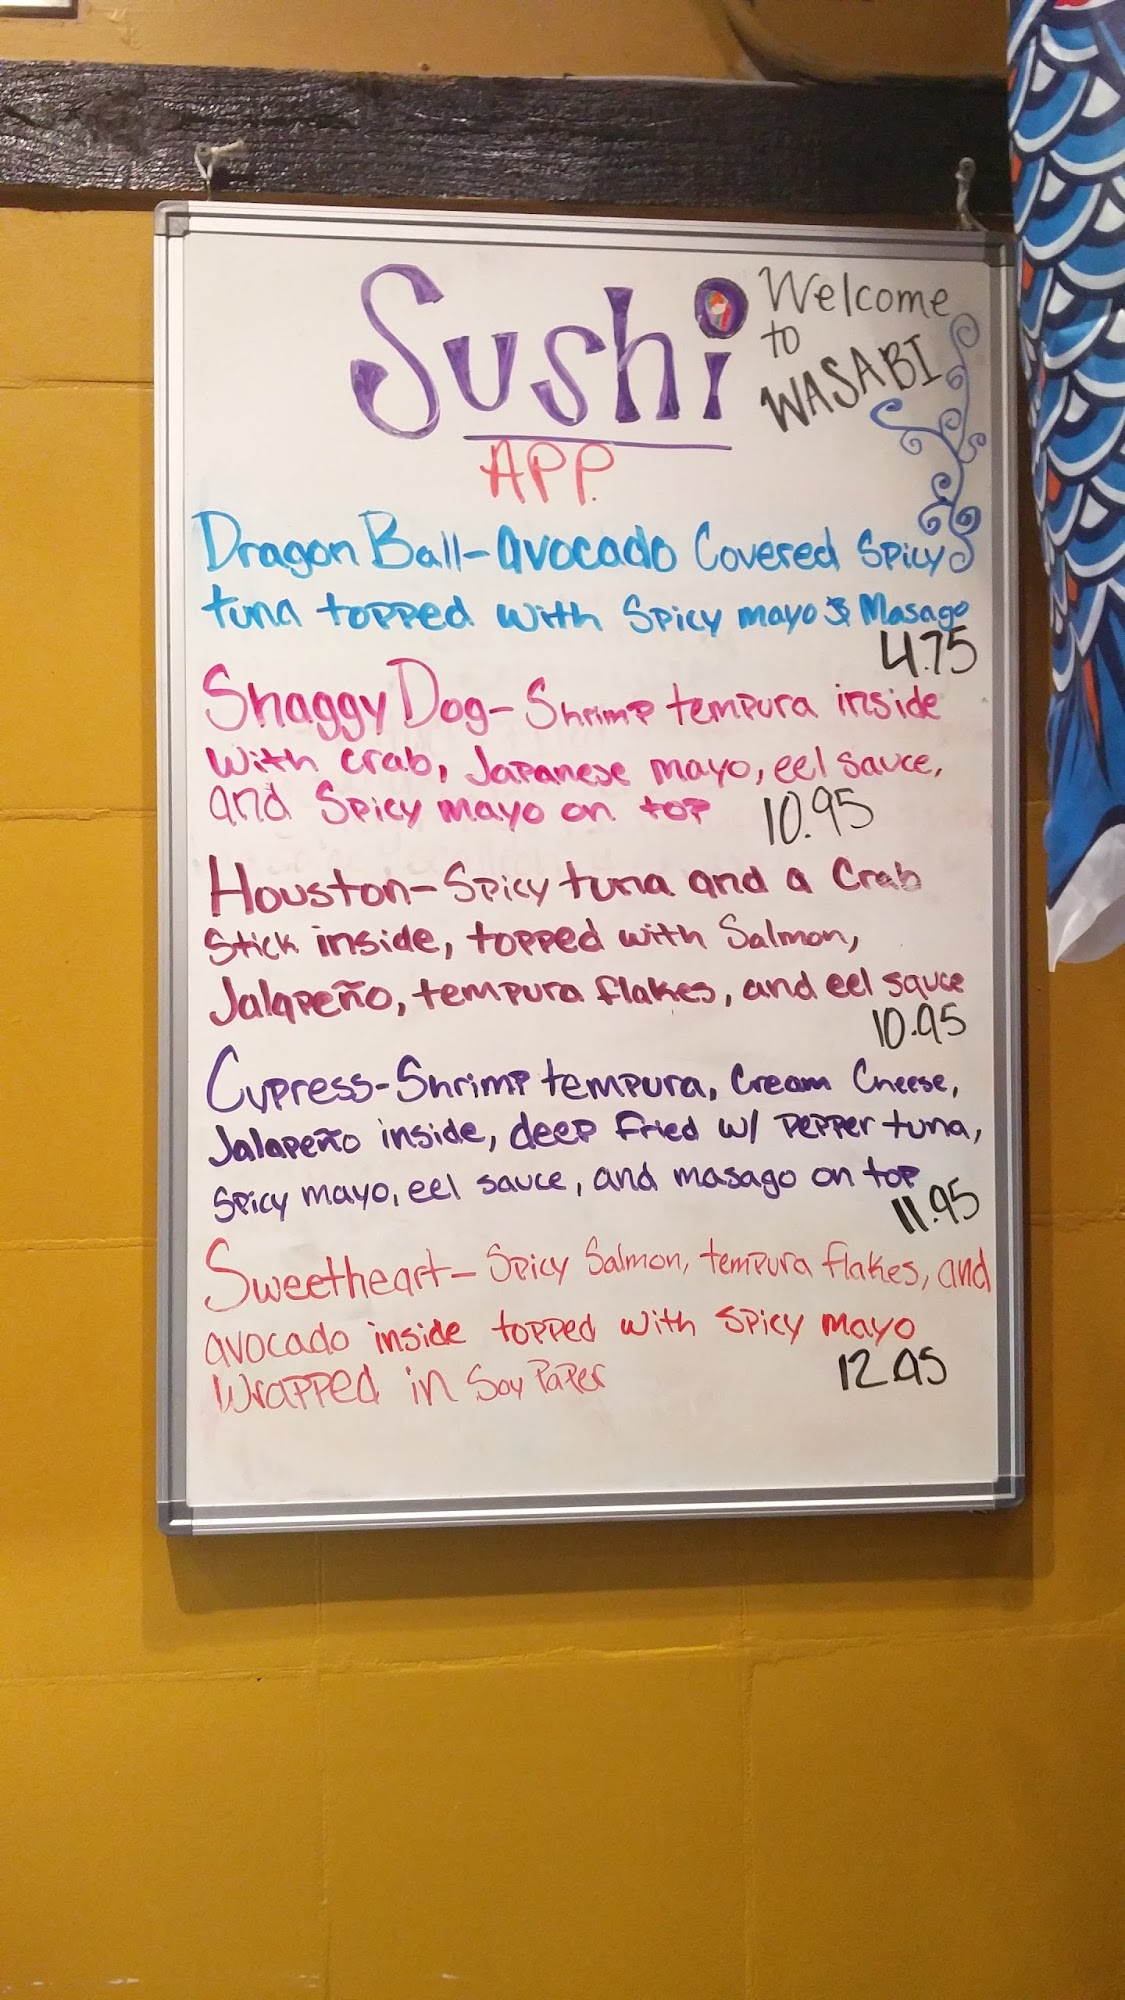 Sushi
Welcome
to
WASABI
APP.
Dragon Ball-avocado Covered Spicy
tuna topped with Spicy mayo & Masago
4.75
Shaggy Dog-Shrimp tempura inside
with crab, Japanese mayo, eel sauce,
and Spicy mayo on top 10.95
Houston-Spicy tuna and a Crab
Stick inside, topped with Salmon,
Jalapeño, tempura flakes, and eel sauce
10.95
Cypress-Shrimp tempura, Cream Cheese,
Jalapeño inside, deep fried w/ Pepper tuna,
Spicy mayo, eel sauce, and masago on top
11.95
Sweetheart-Spicy Salmon, tempura flakes, and
avocado inside topped with Spicy mayo
Wrapped in Soy Paper 12.95